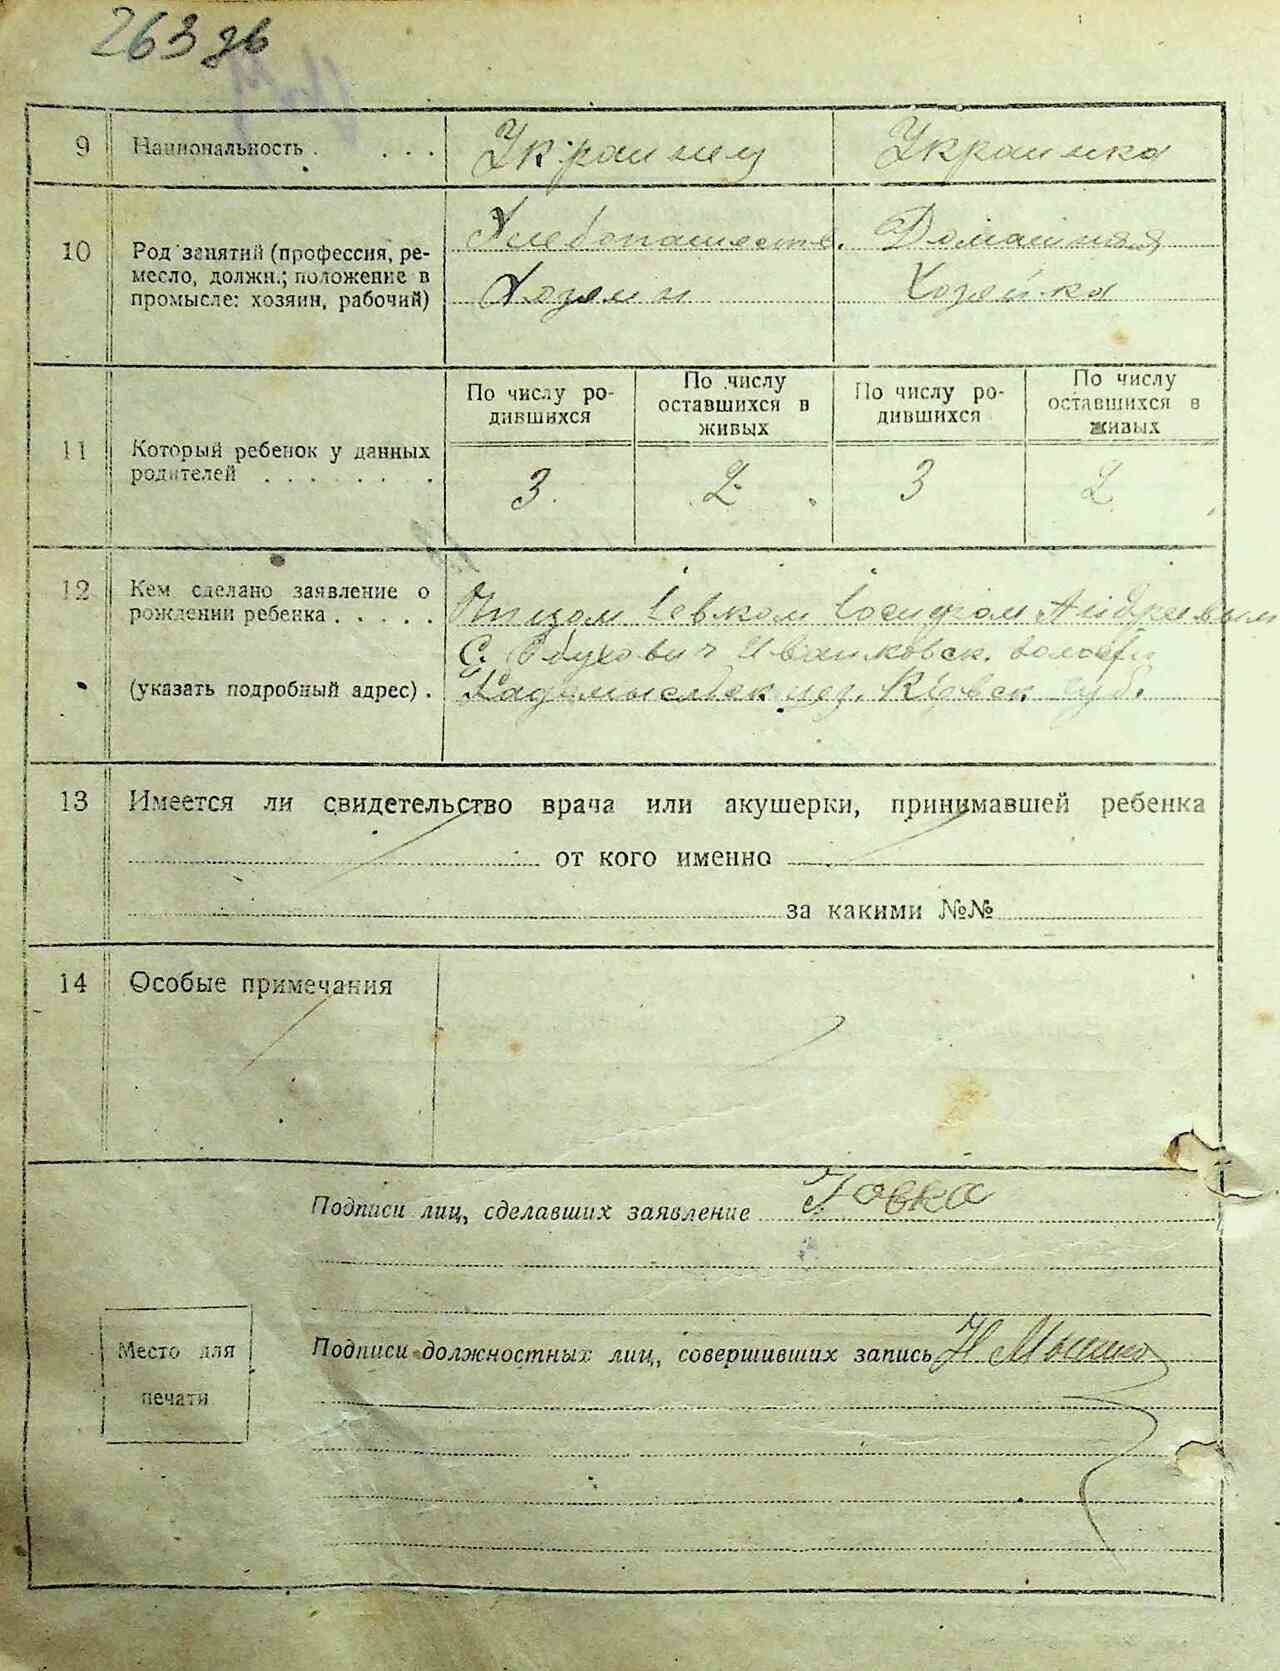 263 зв
9 Национальность . . . . Украинец Украинка
10 Род занятий (профессия, ре-
месло, должн.; положение в
промысле: хозяин, рабочий)
Хлебопашеств. Домашняя
Хозяин Хозяйка
11 Который ребенок у данных
родителей . . . . . .
По числу ро-
дившихся
По числу
оставшихся в
живых
По числу ро-
дившихся
По числу
оставшихся в
живых
3. 2. 3 2
12 Кем сделано заявление о
рождении ребенка . . . . .
(указать подробный адрес) .
Отцом Іосифом Андреевым
С. Обуховичи Иванковск. волости
Радомысльск уез. Київск губ.
13 Имеется ли свидетельство врача или акушерки, принимавшей ребенка
от кого именно
за какими №№
14 Особые примечания
Подписи лиц, сделавших заявление
Место для
печати
Подписи должностных лиц, совершивших запись